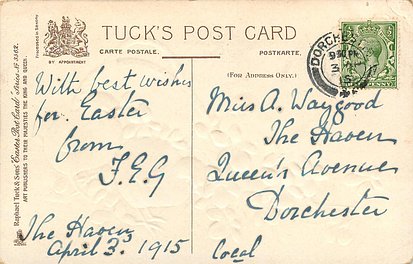 TUCK'S POST CARD
CARTE POSTALE.
POSTKARTE.
(FOR ADDRESS ONLY.)
BY APPOINTMENT
Raphael Tuck & Sons' "Easter Post Card" Series
ART PUBLISHERS TO THEIR MAJESTIES THE KING AND QUEEN.
Processed in Saxony
With best wishes
for Easter
from
F.E.G
The Haven
April 3. 1915
DORCHE
Miss A. Waygood
The Haven
Queen's Avenue
Dorchester
Local